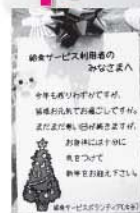 給食サービス利用者の
みなさまへ
今年も残りわずかですが、
皆様お元気でお過ごしですか。
まだまだ寒い日が続きますが、
お身体には十分に
気をつけて
新年をお迎え下さい。
給食サービスボランティア